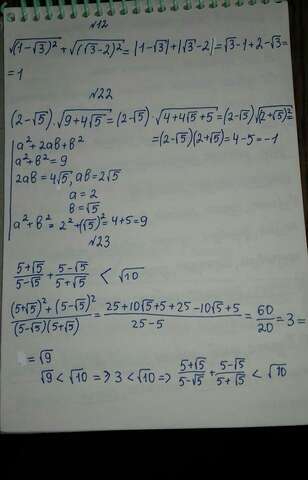 №12
√(1-√3)² + √(√3-2)² = |1-√3|+|√3-2| = √3-1+2-√3=
=1
№22
(2-√5)·√9+4√5 = (2-√5)·√4+4√5+5 = (2-√5)√(2+√5)²=
=(2-√5)(2+√5)=4-5=-1
a²+2ab+b²
a²+b²=9
2ab=4√5, ab=2√5
a=2
b=√5
a²+b²=2²+(√5)²=4+5=9
№23
5+√5/5-√5 + 5-√5/5+√5 < √10
(5+√5)²+(5-√5)²/(5-√5)(5+√5) = 25+10√5+5+25-10√5+5/25-5 = 60/20 = 3 =
=√9
√9<√10 => 3<√10 => 5+√5/5-√5 + 5-√5/5+√5 < √10